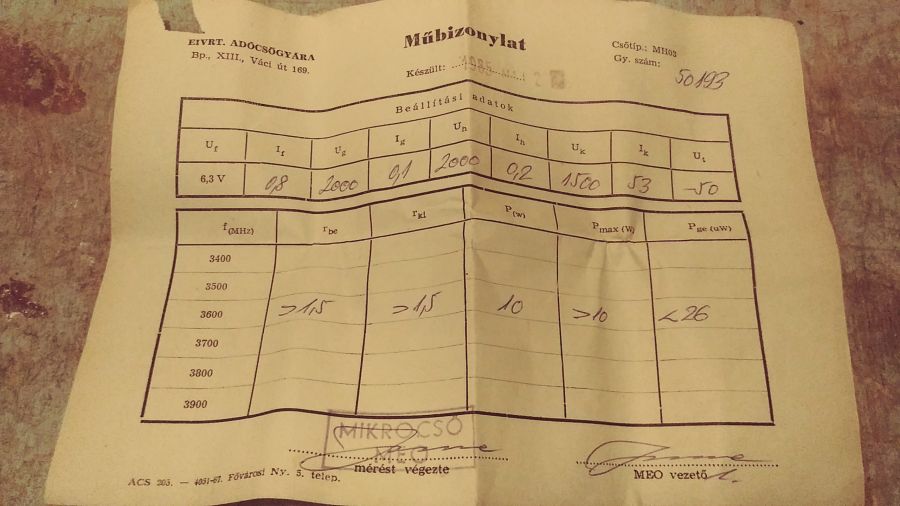 EIVRT. ADÓCSŐGYÁRA
Bp., XIII., Váci út 169.
Műbizonylat
Készült:
Csőtip.: MH03
Gy. szám: 50193
Beállítási adatok
Uf If Ug Ig Uh Ih Uk Ik Ut
6,3 V 0,8 2000 0,1 2000 0,2 1500 53 -50
f(MHz) rbe rkl P(w) Pmax (W) Pge (uW)
3400
3500
3600 >1,5 >1,5 10 >10 <26
3700
3800
3900
MIKROCSŐ
MEO
mérést végezte
MEO vezető
ACS 203. — 4051-67. Fővárosi Ny. 5. telep.